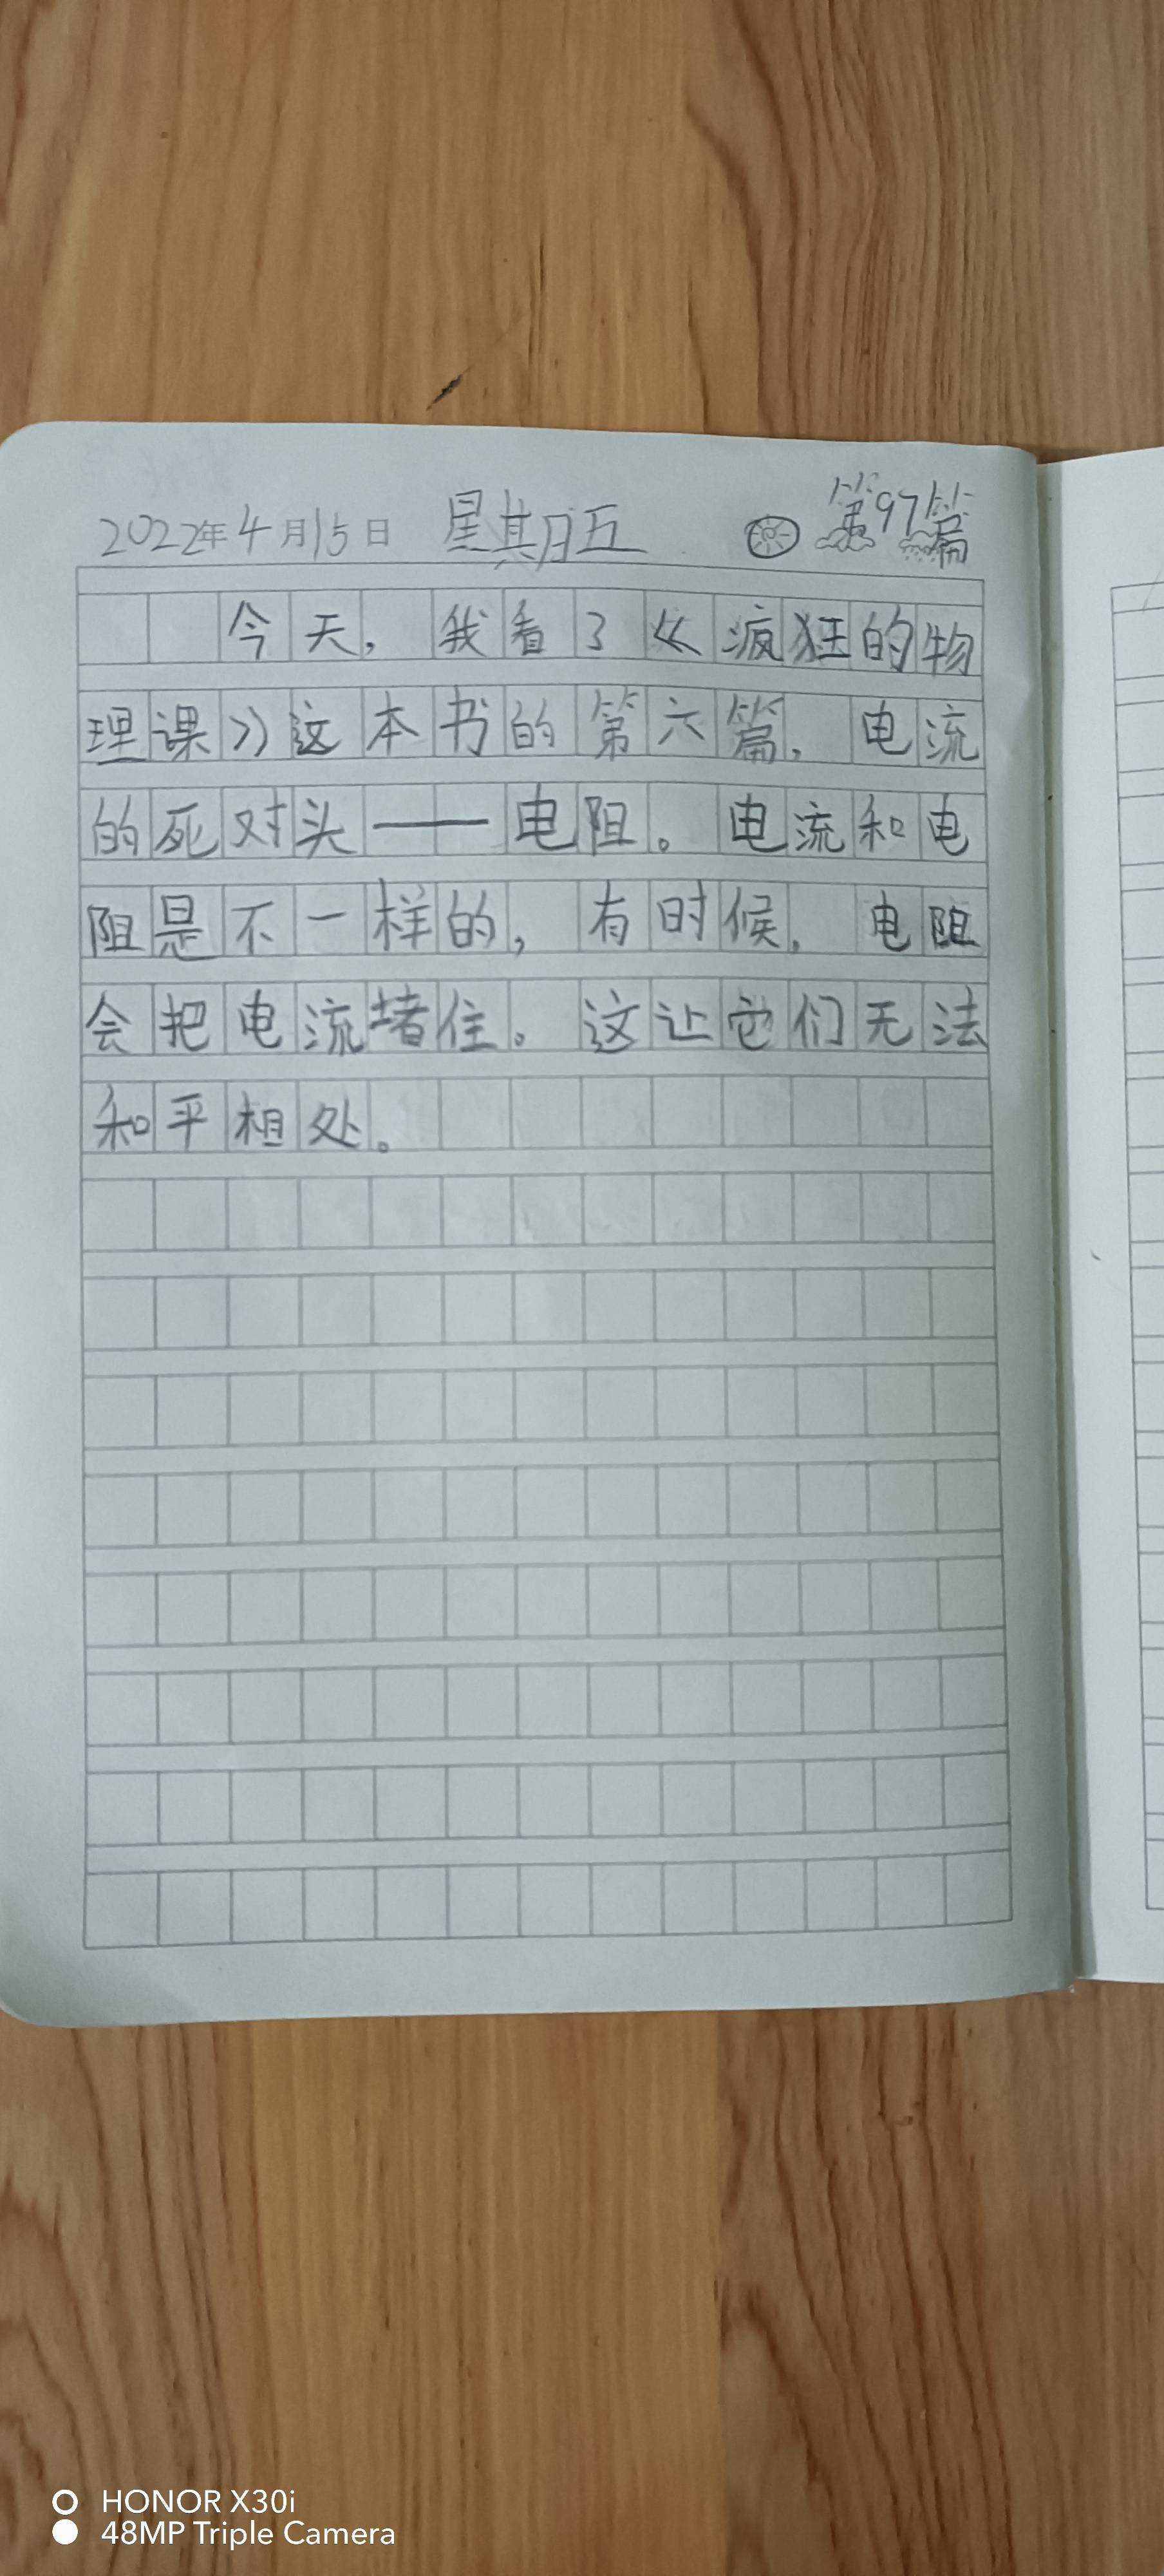 2022年4月15日 星期五 第97篇
今天，我看了《疯狂的物
理课》这本书的第六篇，电流
的死对头——电阻。电流和电
阻是不一样的，有时候，电阻
会把电流堵住。这让它们无法
和平相处。
HONOR X30i
48MP Triple Camera